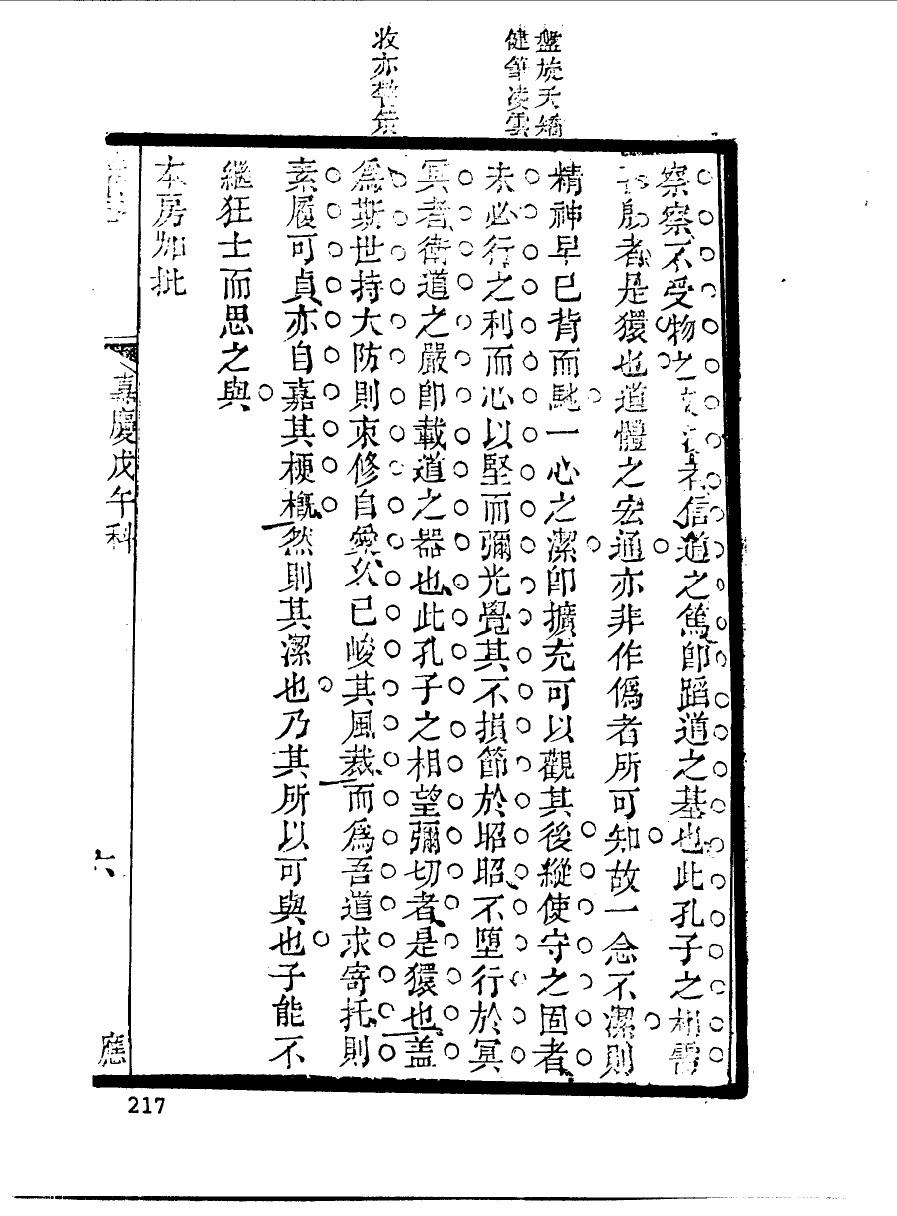 盤旋夭矯
健筆凌雲
收亦警策
察察不受物之者信道之篤即蹈道之基也此孔子之相需
殷者是獧也道體之宏通亦非作僞者所可知故一念不潔則
精神早已背而馳一心之潔即擴充可以觀其後縱使守之固者
未必行之利而心以堅而彌光覺其不損節於昭昭不墮行於冥
冥者衛道之嚴即載道之器也此孔子之相望彌切者是獧也蓋
爲斯世持大防則束修自愛久已峻其風裁而爲吾道求寄托則
素履可貞亦自嘉其梗概然則其潔也乃其所以可與也子能不
繼狂士而思之與
本房加批
嘉慶戊午科
六
應
217